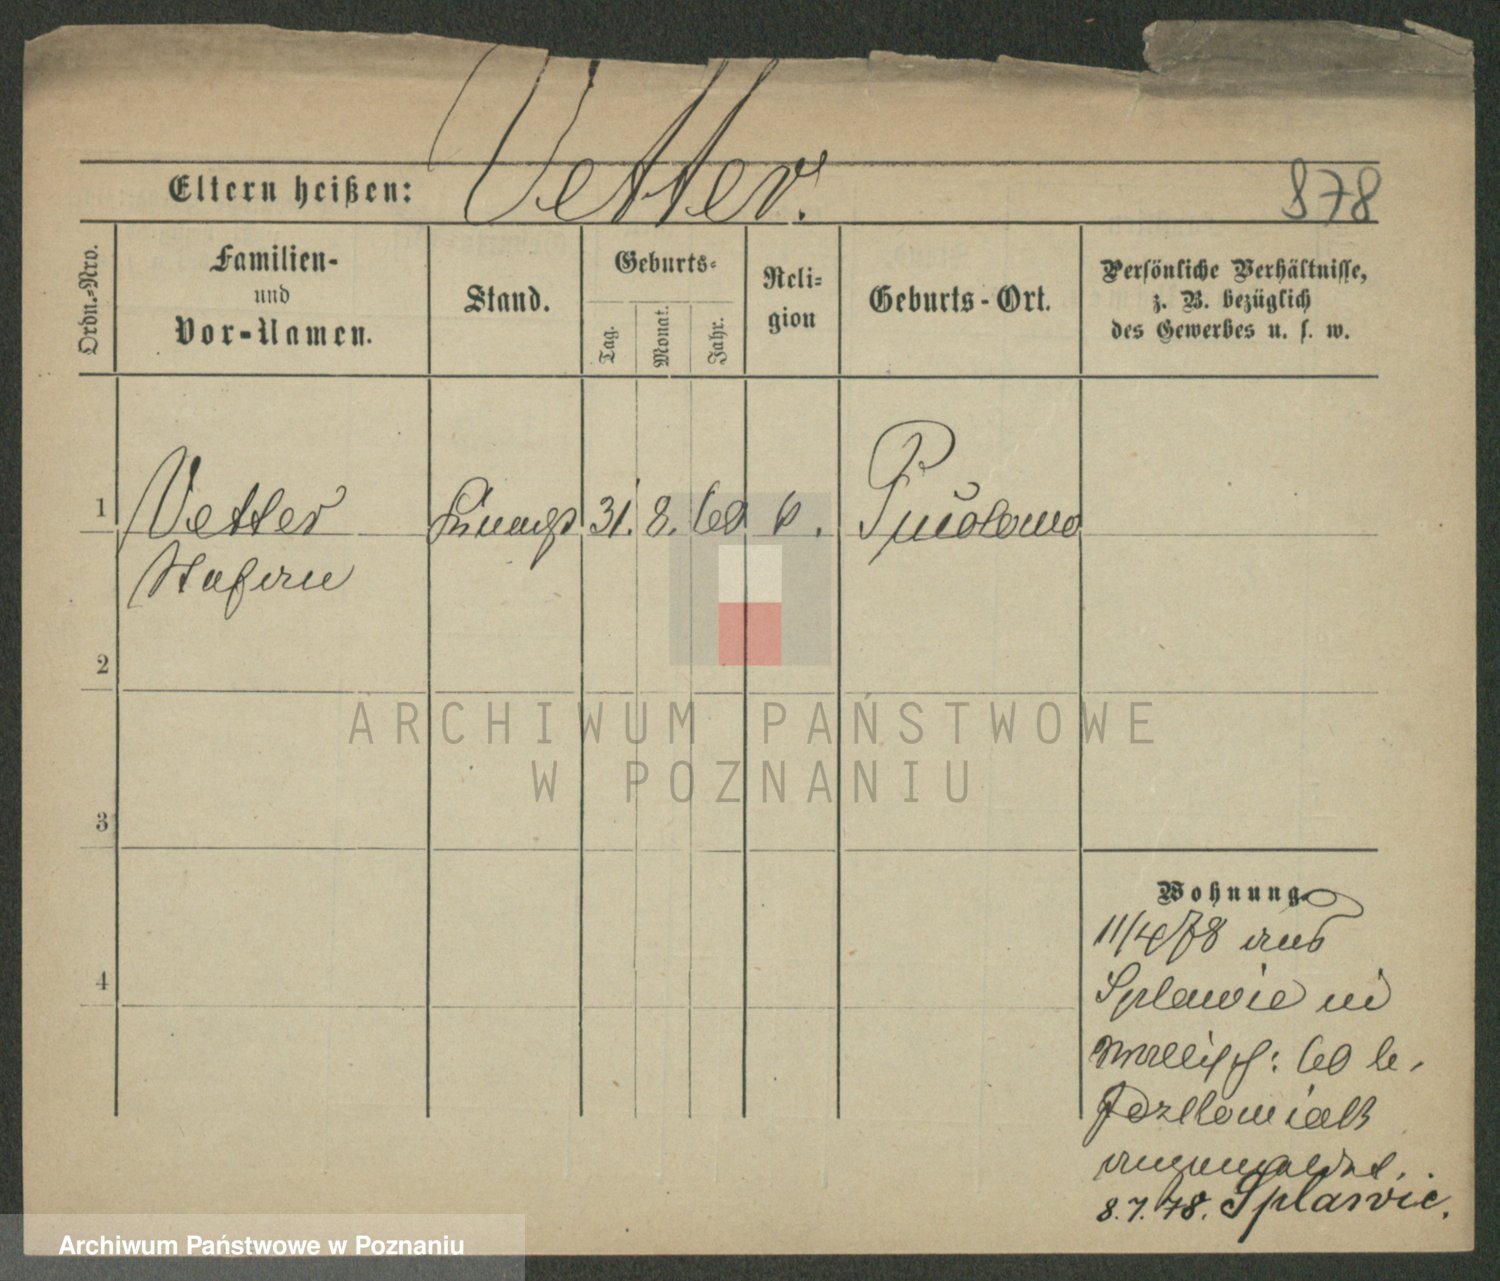 Vetter.
Eltern heißen:
878
Ordn.-Nro.
Familien-
und
Vor-Namen.
Stand.
Geburts-
Tag.
Monat.
Jahr.
Reli-
gion
Geburts-Ort.
Persönliche Verhältnisse,
z. B. bezüglich
des Gewerbes u. s. w.
1
Vetter
31. 8. 60
2
3
4
Wohnung.
11/4 78 aus
Splawie in
Wallisch: 60 b.
angemeldet.
8.7.78. Splawie.
ARCHIWUM PAŃSTWOWE
W POZNANIU
Archiwum Państwowe w Poznaniu